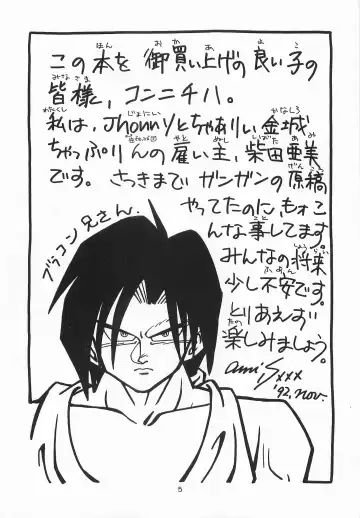 この本を御買い上げの良い子の
皆様、コンニチハ。
私は、Jhonnyとちゃありぃ金城
ちゃっぷりんの雇い主、柴田亜美
です。さっきまでガンガンの原稿
やってたのに、もォこ
んな事してます。
みんなの将来
少し不安です。
とりあえず
楽しみましょう。
Ami Sxxx
'92, Nov.
ブラコン兄さん。
5